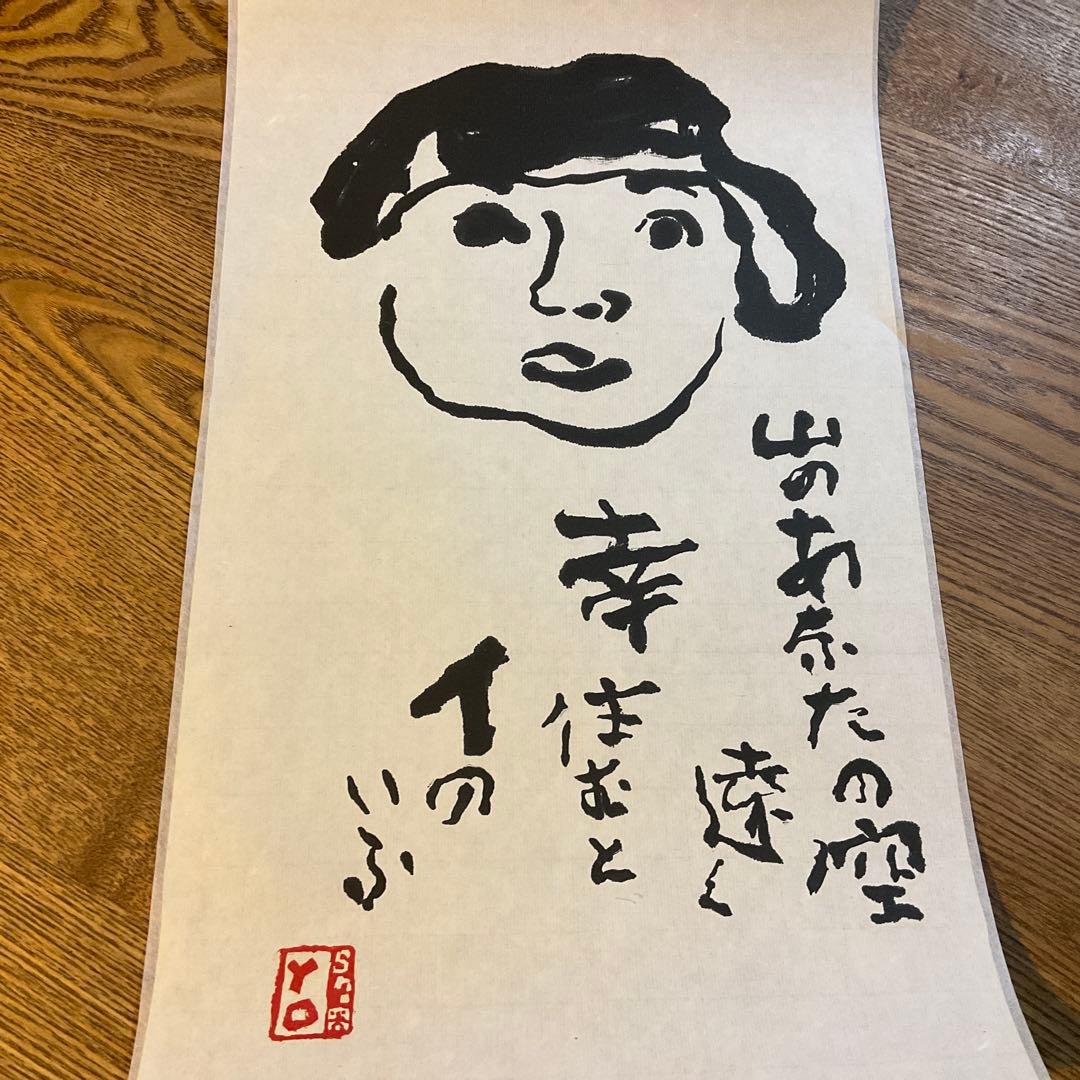 山のあなたの空
遠く
幸住むと
イの
いふ
YO